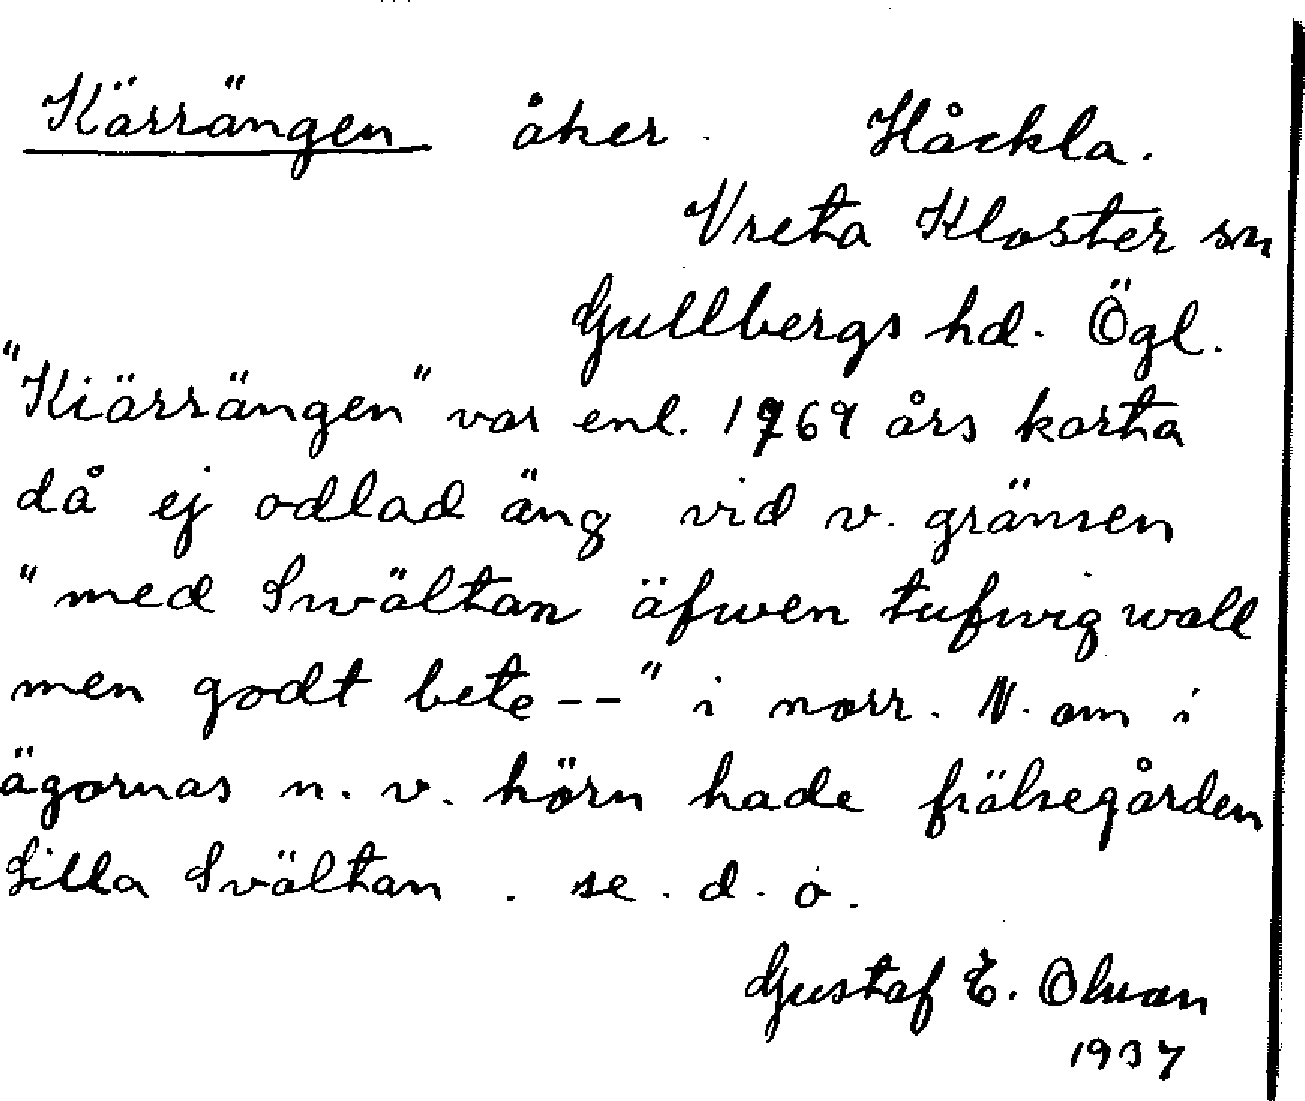 Kärrängen åker. Håckla.
Vreta Kloster sn
Gullbergs hd. Ögl.
"Kiärrängen" var enl. 1769 års karta
då ej odlad äng vid v. gränsen
"med Swältan äfwen tufwig wall
men godt bete--" i norr. N. om i
ägornas n. v. hörn hade frälsegården
Lilla Svältan. se. d. o.
Gustaf E. Olsson
1937